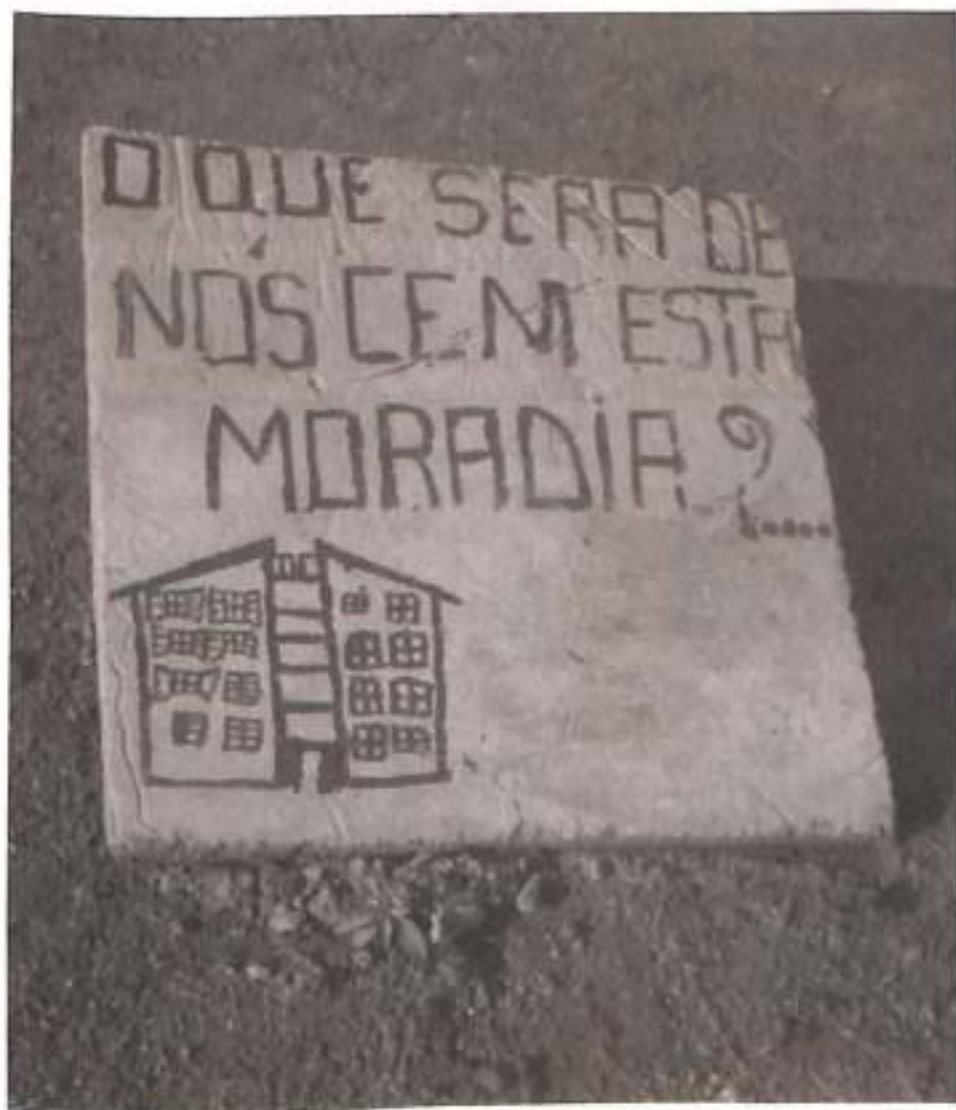 O QUE SERÁ DE
NÓS CEM ESTA
MORADIA..?.....